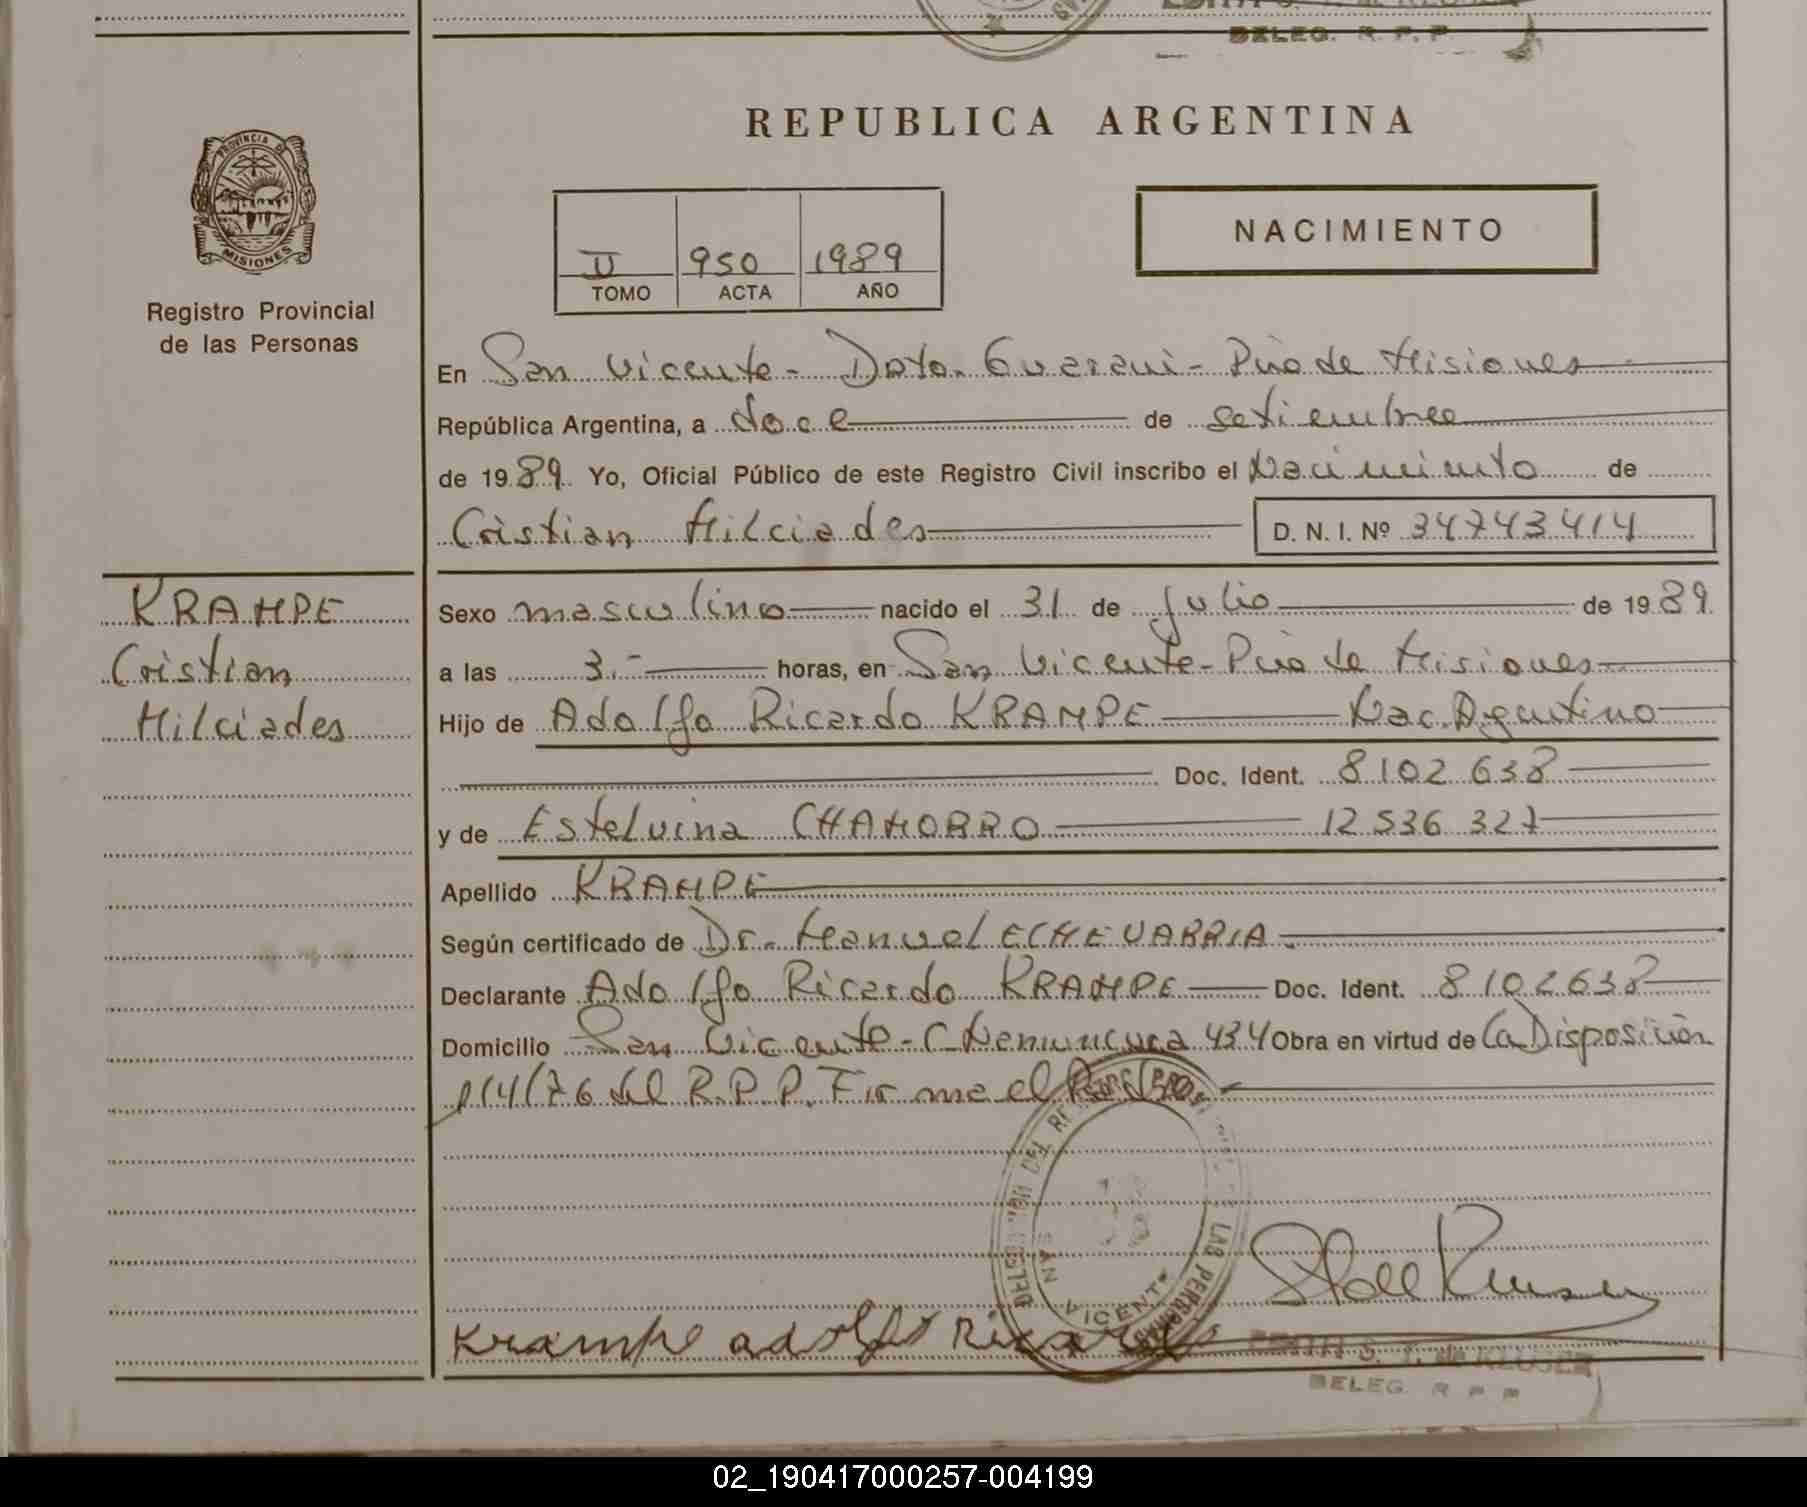 BELEG. R. P. P.
REPUBLICA ARGENTINA
PROVINCIA DE
MISIONES
Registro Provincial
de las Personas
II 950 1989
TOMO ACTA AÑO
NACIMIENTO
En San Vicente - Dpto. Guarani - Pcia de Misiones
República Argentina, a doce de setiembre
de 1989 Yo, Oficial Público de este Registro Civil inscribo el Nacimiento de
Cristian Milciades D. N. I. Nº 34743414
KRAMPE
Cristian
Milciades
Sexo masculino nacido el 31 de Julio de 1989
a las 3.- horas, en San Vicente - Pcia de Misiones
Hijo de Adolfo Ricardo KRAMPE Nac. Argentino
Doc. Ident. 8102638
y de Estelvina CHAMORRO 12536327
Apellido KRAMPE
Según certificado de Dr. Manuel ECHEVARRIA.
Declarante Adolfo Ricardo KRAMPE Doc. Ident. 8102638
Domicilio San Vicente - C Nemuncura 434 Obra en virtud de la Disposición
1/4/76 del R.P.P. Firma el
SAN VICENTE
LAS PERSONAS
Krampe adolfo Ricardo
EDITH S. T. de KLUSER
BELEG. R P P
02_190417000257-004199